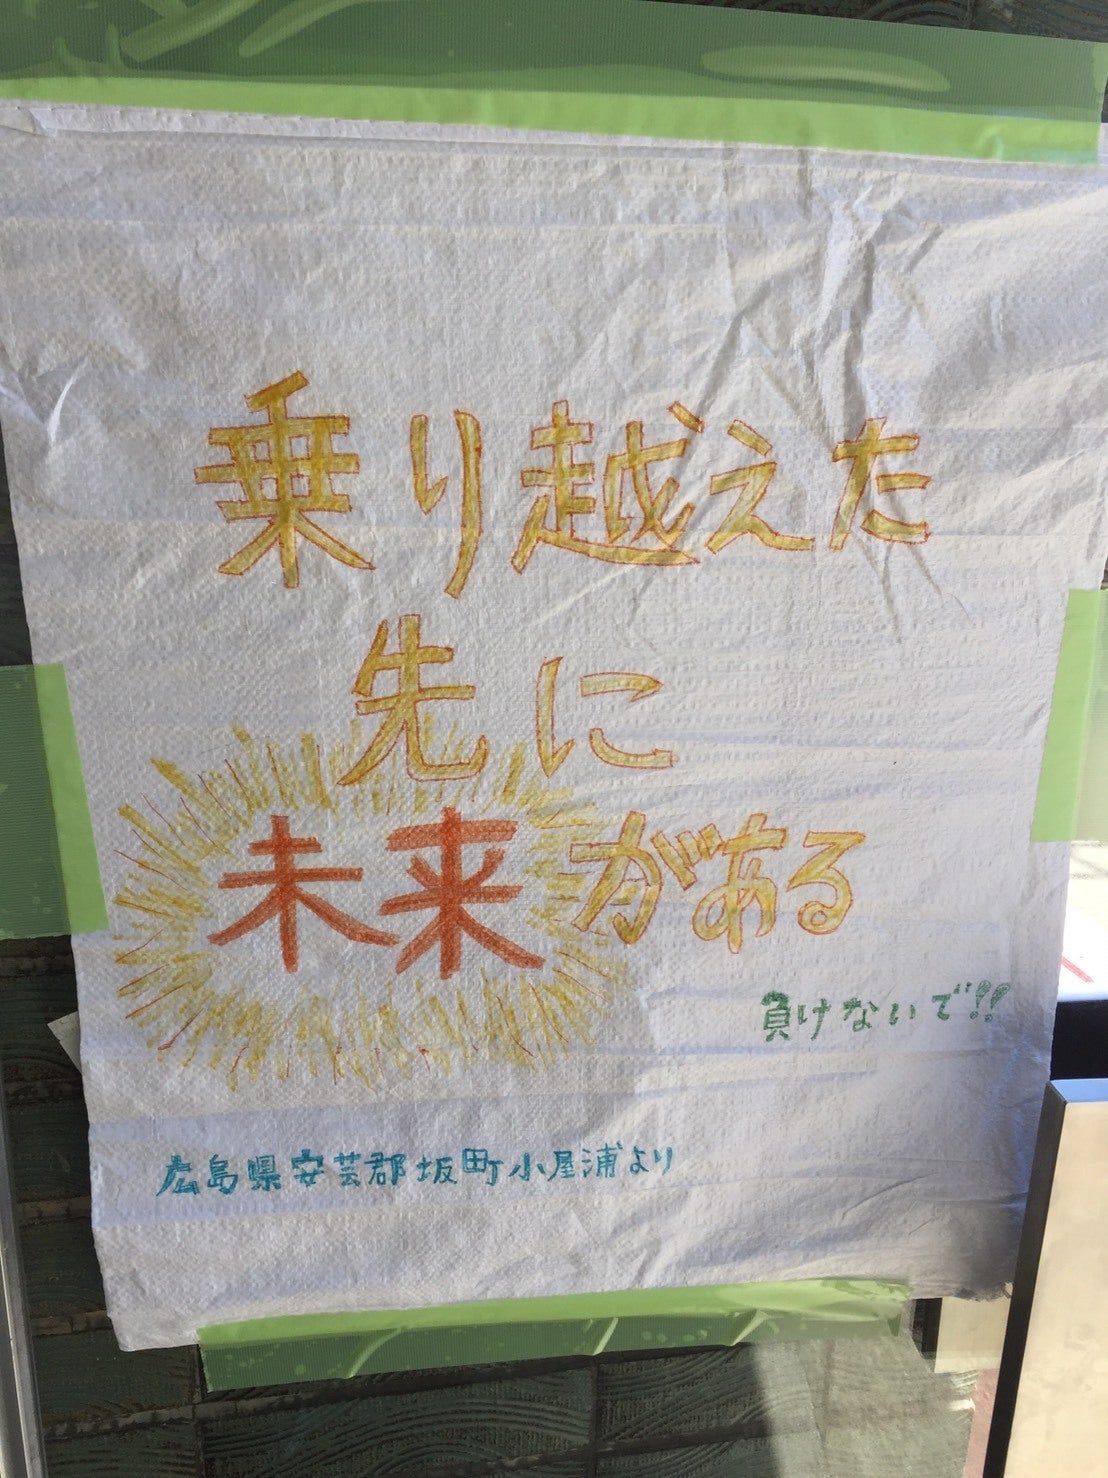 乗り越えた
先に
未来がある
負けないで!!
広島県安芸郡坂町小屋浦より